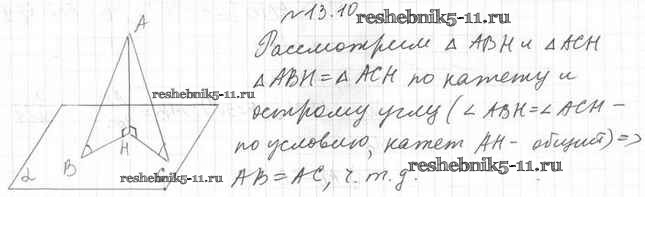 №13.10
reshebnik5-11.ru
Рассмотрим △ ABH и △ACH
△ABH = △ ACH по катету и
острому углу (∠ ABH=∠ ACH –
по условию, катет AH - общий) =>
AB = AC, ч. т. д.
reshebnik5-11.ru
A
reshebnik5-11.ru
B
H
C
α
reshebnik5-11.ru